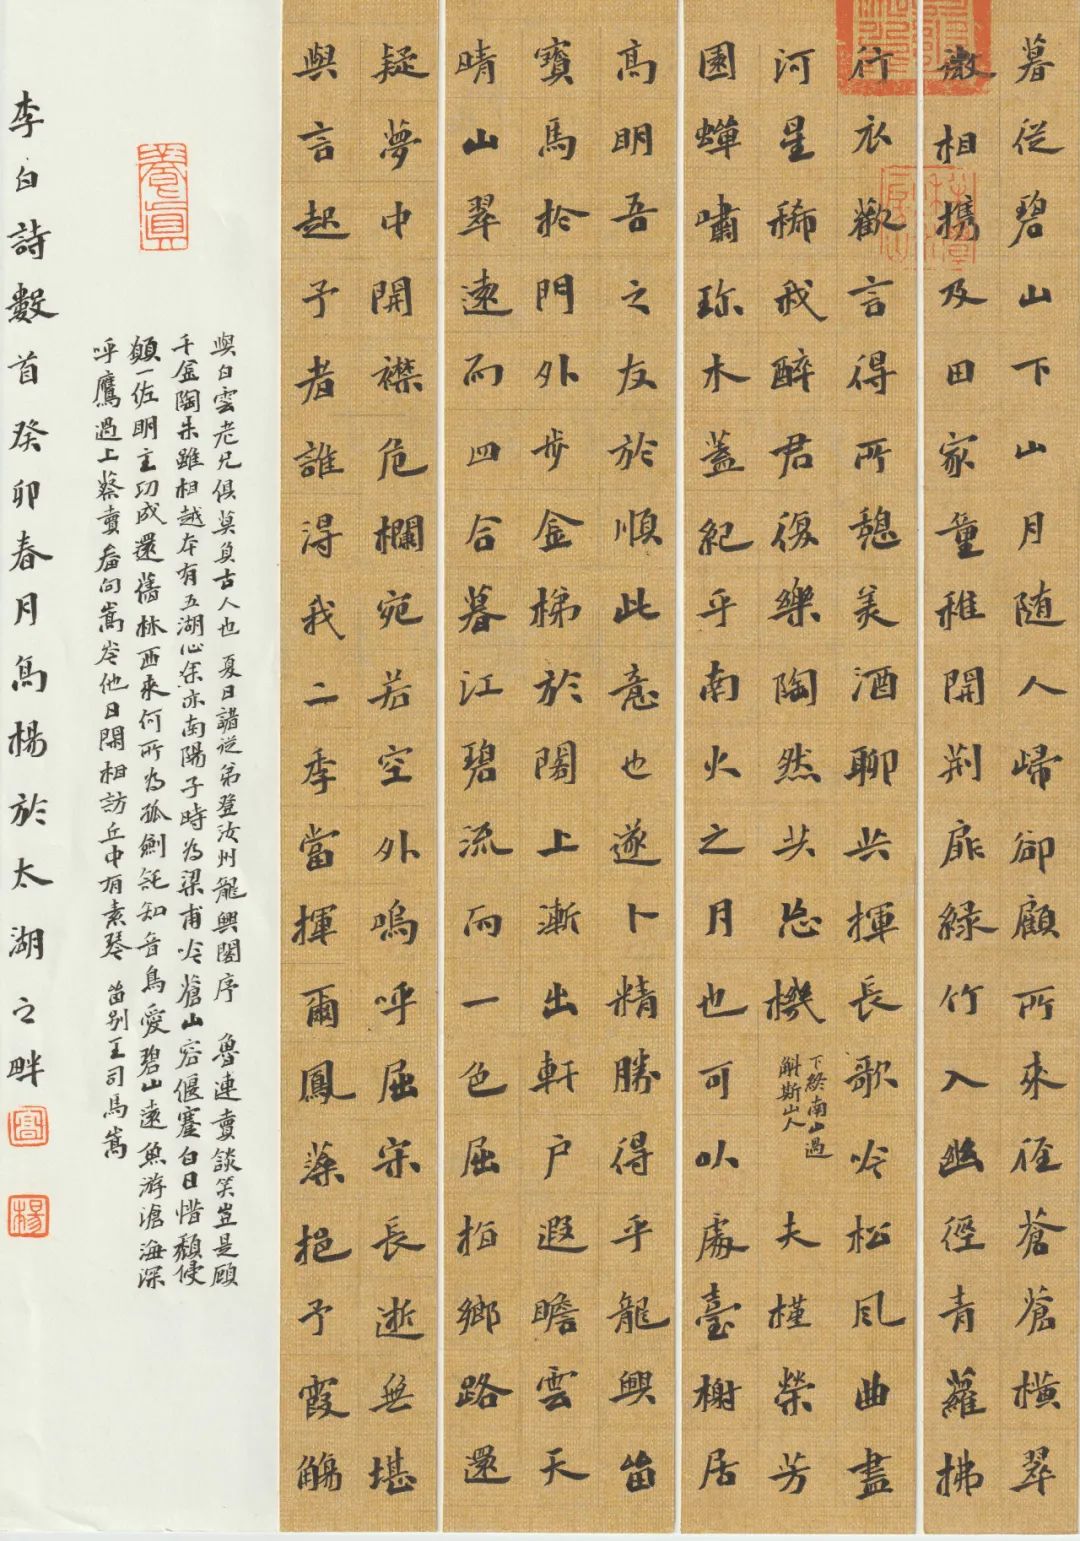 暮從碧山下山月随人歸卻顧所來径蒼蒼橫翠
微相携及田家童稚開荆扉綠竹入幽徑青蘿拂
行衣歡言得所憩美酒聊共揮長歌吟松风曲盡
河星稀我醉君復樂陶然共忘機
下終南山過
斛斯山人
夫槿榮芳
園蟬嘯珎木蓋紀乎南火之月也可以處臺榭居
高明吾之友於順此意也遂卜精勝得乎龍興畄
寶馬於門外步金梯於閣上漸出軒户遐瞻雲天
晴山翠遠而四合暮江碧流而一色屈指鄉路還
疑夢中開襟危欄宛若空外嗚呼屈宋長逝無堪
與言起予者誰得我二季當揮爾鳳藻挹予霞觴
與白雲老兄俱莫負古人也 夏日諸從弟登汝州龍興閣序 魯連賣談笑豈是顾
千金陶朱雖相越本有五湖心余亦南陽子時為梁甫吟蒼山容偃蹇白日惜頽侵
願一佐明主功成還舊林西來何所為孤劍託知音鳥愛碧山遠魚游滄海深
呼鷹過上蔡賣畚向嵩岑他日閑相訪丘中有素琴 畄别王司馬嵩
養真
李白詩數首癸卯春月高楊於太湖之畔
高
楊